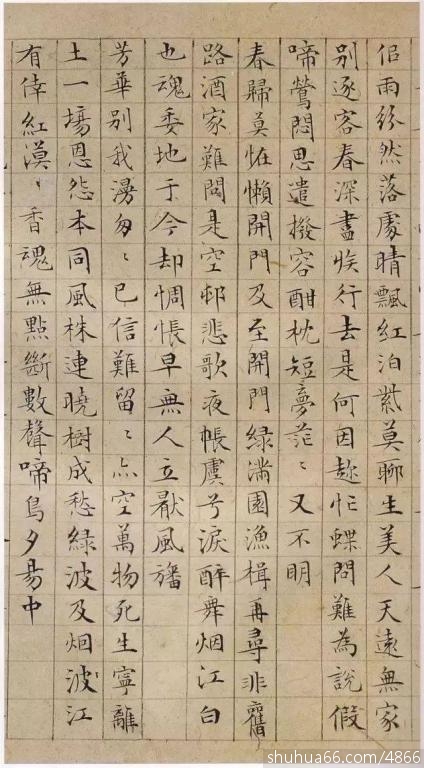 佀雨紛然落處晴飄紅泊紫莫聊生美人天遠無家
別逐客春深盡族行去是何因趂忙蝶問難為說假
啼鶯悶思遣撥容酣枕短夢茫〻又不明
春歸莫怪懶開門及至開門綠滿園漁楫再尋非舊
路酒家難問是空邨悲歌夜帳虞兮淚醉舞烟江白
也魂委地于今却惆悵早無人立厭風旛
芳華別我漫匆〻已信難留〻亦空萬物死生寧離
土一場恩怨本同風株連曉樹成愁綠波及烟波江
有倖紅漠〻香魂無點斷數聲啼鳥夕昜中
shuhua66.com/4866